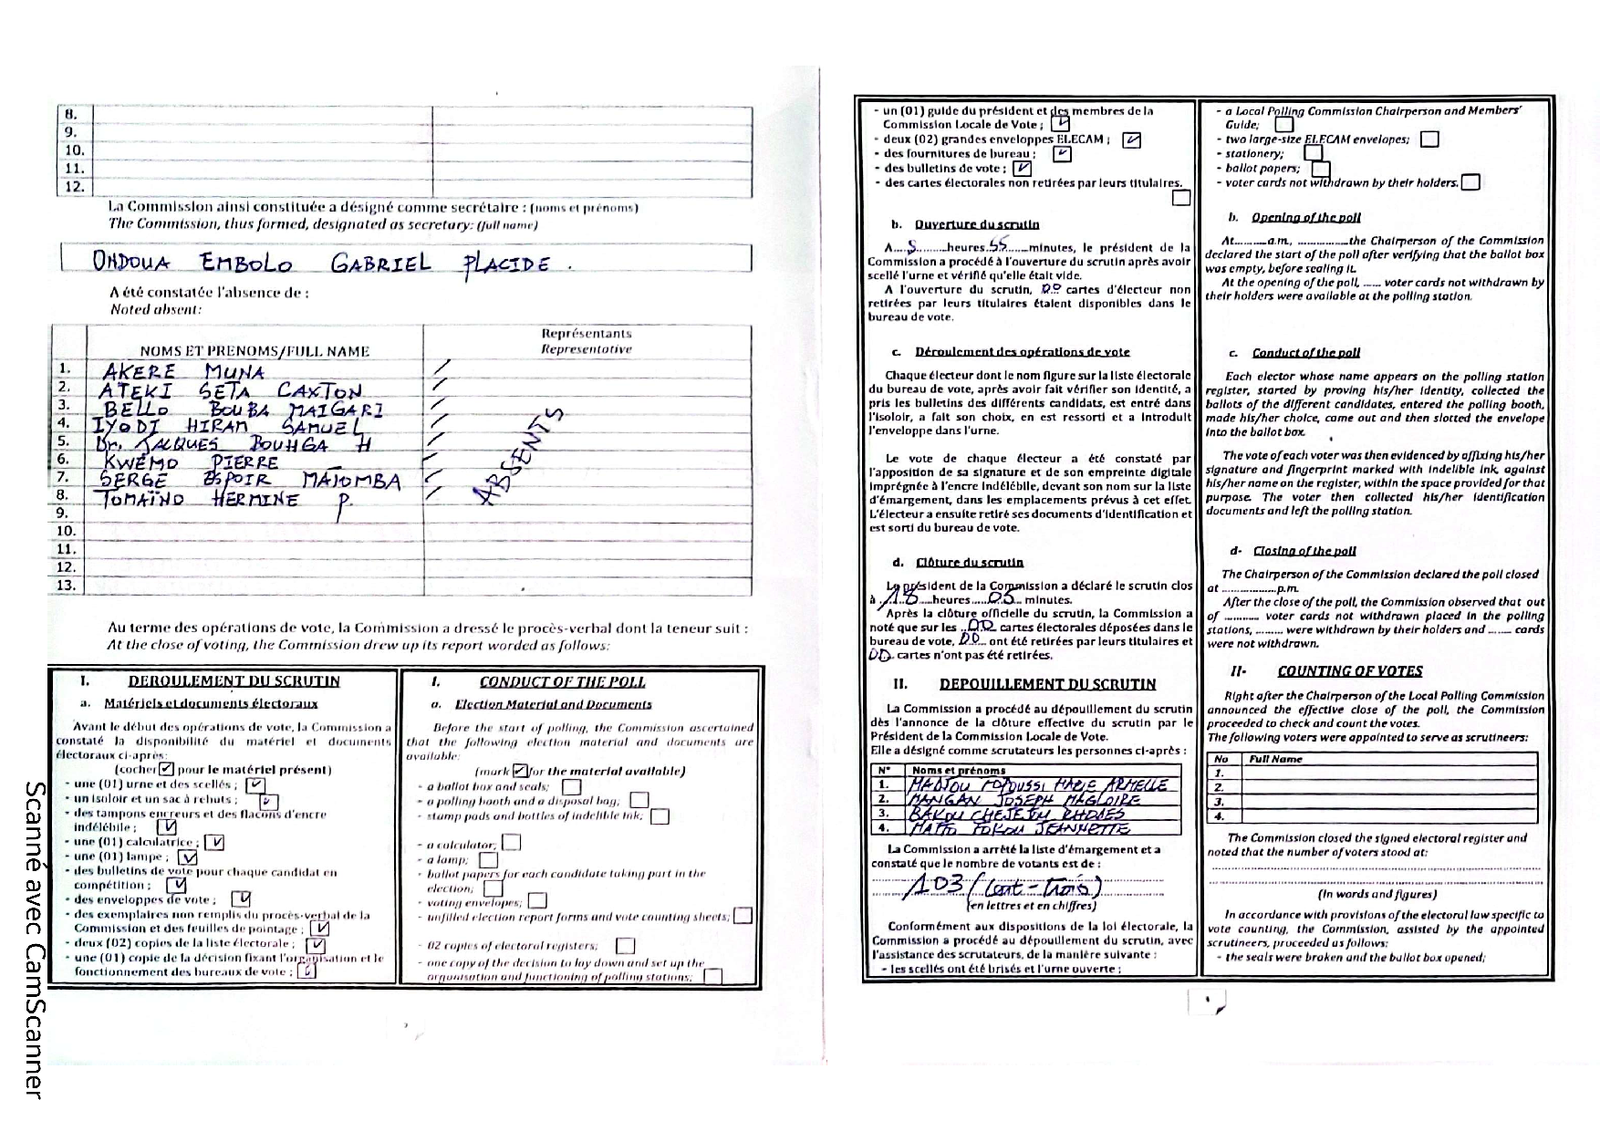 8.
9.
10.
11.
12.
La Commission ainsi constituée a désigné comme secrétaire : (noms et prénoms)
The Commission, thus formed, designated as secretary: (full name)
ONDOUA EMBOLO GABRIEL PLACIDE .
A été constatée l'absence de :
Noted absent:
NOMS ET PRENOMS/FULL NAME
Représentants
Representative
1. AKERE MUNA
2. ATEKI SETA CAXTON
3. BELLO BOUBA MAIGARI
4. IYODI HIRAM SAMUEL
5. Dr. JACQUES BOUHGA H
6. KWEMO PIERRE
7. SERGE ESPOIR MATOMBA
8. TOMAÏNO HERMINE P.
ABSENTS
9.
10.
11.
12.
13.
Au terme des opérations de vote, la Commission a dressé le procès-verbal dont la teneur suit :
At the close of voting, the Commission drew up its report worded as follows:
I. DEROULEMENT DU SCRUTIN
a. Matériels et documents électoraux
Avant le début des opérations de vote, la Commission a
constaté la disponibilité du matériel et documents
électoraux ci-après:
(cocher ☑ pour le matériel présent)
- une (01) urne et des scellés ; ☑
- un isoloir et un sac à rebuts ; ☑
- des tampons encreurs et des flacons d'encre
indélébile ; ☑
- une (01) calculatrice ; ☑
- une (01) lampe ; ☑
- des bulletins de vote pour chaque candidat en
compétition ; ☑
- des enveloppes de vote ; ☑
- des exemplaires non remplis du procès-verbal de la
Commission et des feuilles de pointage ; ☑
- deux (02) copies de la liste électorale ; ☑
- une (01) copie de la décision fixant l'organisation et le
fonctionnement des bureaux de vote ; ☑
I. CONDUCT OF THE POLL
a. Election Material and Documents
Before the start of polling, the Commission ascertained
that the following election material and documents are
available:
(mark ☑ for the material available)
- a ballot box and seals; ☐
- a polling booth and a disposal bag; ☐
- stamp pads and bottles of indelible ink; ☐
- a calculator; ☐
- a lamp; ☐
- ballot papers for each candidate taking part in the
election; ☐
- voting envelopes; ☐
- unfilled election report forms and vote counting sheets; ☐
- 02 copies of electoral registers; ☐
- one copy of the decision to lay down and set up the
organisation and functioning of polling stations; ☐
- un (01) guide du président et des membres de la
Commission Locale de Vote ; ☑
- deux (02) grandes enveloppes ELECAM ; ☑
- des fournitures de bureau ; ☑
- des bulletins de vote ; ☑
- des cartes électorales non retirées par leurs titulaires. ☐
b. Ouverture du scrutin
A....heures 55 minutes, le président de la
Commission a procédé à l'ouverture du scrutin après avoir
scellé l'urne et vérifié qu'elle était vide.
A l'ouverture du scrutin, cartes d'électeur non
retirées par leurs titulaires étaient disponibles dans le
bureau de vote.
c. Déroulement des opérations de vote
Chaque électeur dont le nom figure sur la liste électorale
du bureau de vote, après avoir fait vérifier son identité, a
pris les bulletins des différents candidats, est entré dans
l'isoloir, a fait son choix, en est ressorti et a introduit
l'enveloppe dans l'urne.
Le vote de chaque électeur a été constaté par
l'apposition de sa signature et de son empreinte digitale
imprégnée à l'encre indélébile, devant son nom sur la liste
d'émargement, dans les emplacements prévus à cet effet.
L'électeur a ensuite retiré ses documents d'identification et
est sorti du bureau de vote.
d. Clôture du scrutin
Le président de la Commission a déclaré le scrutin clos
à 18 heures 05 minutes.
Après la clôture officielle du scrutin, la Commission a
noté que sur les 00 cartes électorales déposées dans le
bureau de vote, 00 ont été retirées par leurs titulaires et
00 cartes n'ont pas été retirées.
II. DEPOUILLEMENT DU SCRUTIN
La Commission a procédé au dépouillement du scrutin
dès l'annonce de la clôture effective du scrutin par le
Président de la Commission Locale de Vote.
Elle a désigné comme scrutateurs les personnes ci-après :
N° Noms et prénoms
1. MADJOU FOPOUSSI MARIE ARMELLE
2. MANGAN JOSEPH MAGLOIRE
3. BAKOU CHEJEJU RHODES
4. MATTO FOKOU JEANNETTE
La Commission a arrêté la liste d'émargement et a
constaté que le nombre de votants est de :
103 / (cent-trois)
(en lettres et en chiffres)
Conformément aux dispositions de la loi électorale, la
Commission a procédé au dépouillement du scrutin, avec
l'assistance des scrutateurs, de la manière suivante :
- les scellés ont été brisés et l'urne ouverte ;
- a Local Polling Commission Chairperson and Members'
Guide; ☐
- two large-size ELECAM envelopes; ☐
- stationery; ☐
- ballot papers; ☐
- voter cards not withdrawn by their holders. ☐
b. Opening of the poll
At..........a.m, ...............the Chairperson of the Commission
declared the start of the poll after verifying that the ballot box
was empty, before sealing it.
At the opening of the poll, ...... voter cards not withdrawn by
their holders were available at the polling station.
c. Conduct of the poll
Each elector whose name appears on the polling station
register, started by proving his/her identity, collected the
ballots of the different candidates, entered the polling booth,
made his/her choice, came out and then slotted the envelope
into the ballot box.
The vote of each voter was then evidenced by affixing his/her
signature and fingerprint marked with indelible ink, against
his/her name on the register, within the space provided for that
purpose. The voter then collected his/her identification
documents and left the polling station.
d- Closing of the poll
The Chairperson of the Commission declared the poll closed
at ................p.m.
After the close of the poll, the Commission observed that out
of ........... voter cards not withdrawn placed in the polling
stations, ........ were withdrawn by their holders and ....... cards
were not withdrawn.
II- COUNTING OF VOTES
Right after the Chairperson of the Local Polling Commission
announced the effective close of the poll, the Commission
proceeded to check and count the votes.
The following voters were appointed to serve as scrutineers:
No Full Name
1.
2.
3.
4.
The Commission closed the signed electoral register and
noted that the number of voters stood at:
(In words and figures)
In accordance with provisions of the electoral law specific to
vote counting, the Commission, assisted by the appointed
scrutineers, proceeded as follows:
- the seals were broken and the ballot box opened;
Scanné avec CamScanner